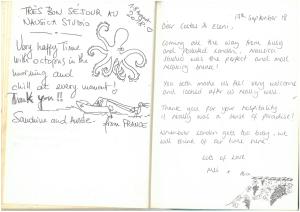 TRÈS BON SÉJOUR AU
NAUSICA STUDIO
Very happy time
with octopus in the
morning and
chill at every moment!
Thank you!!
from FRANCE
17th September 18
Dear Costas & Eleni,
Coming all the way from busy
and London, Nausica
studio was the perfect and most
relaxing time!
You both made us feel very welcome
and looked after us really well.
Thank you for your hospitality
it really was a sense of paradise!
Whenever London gets too busy, we
will think of our time here!
Lots of love